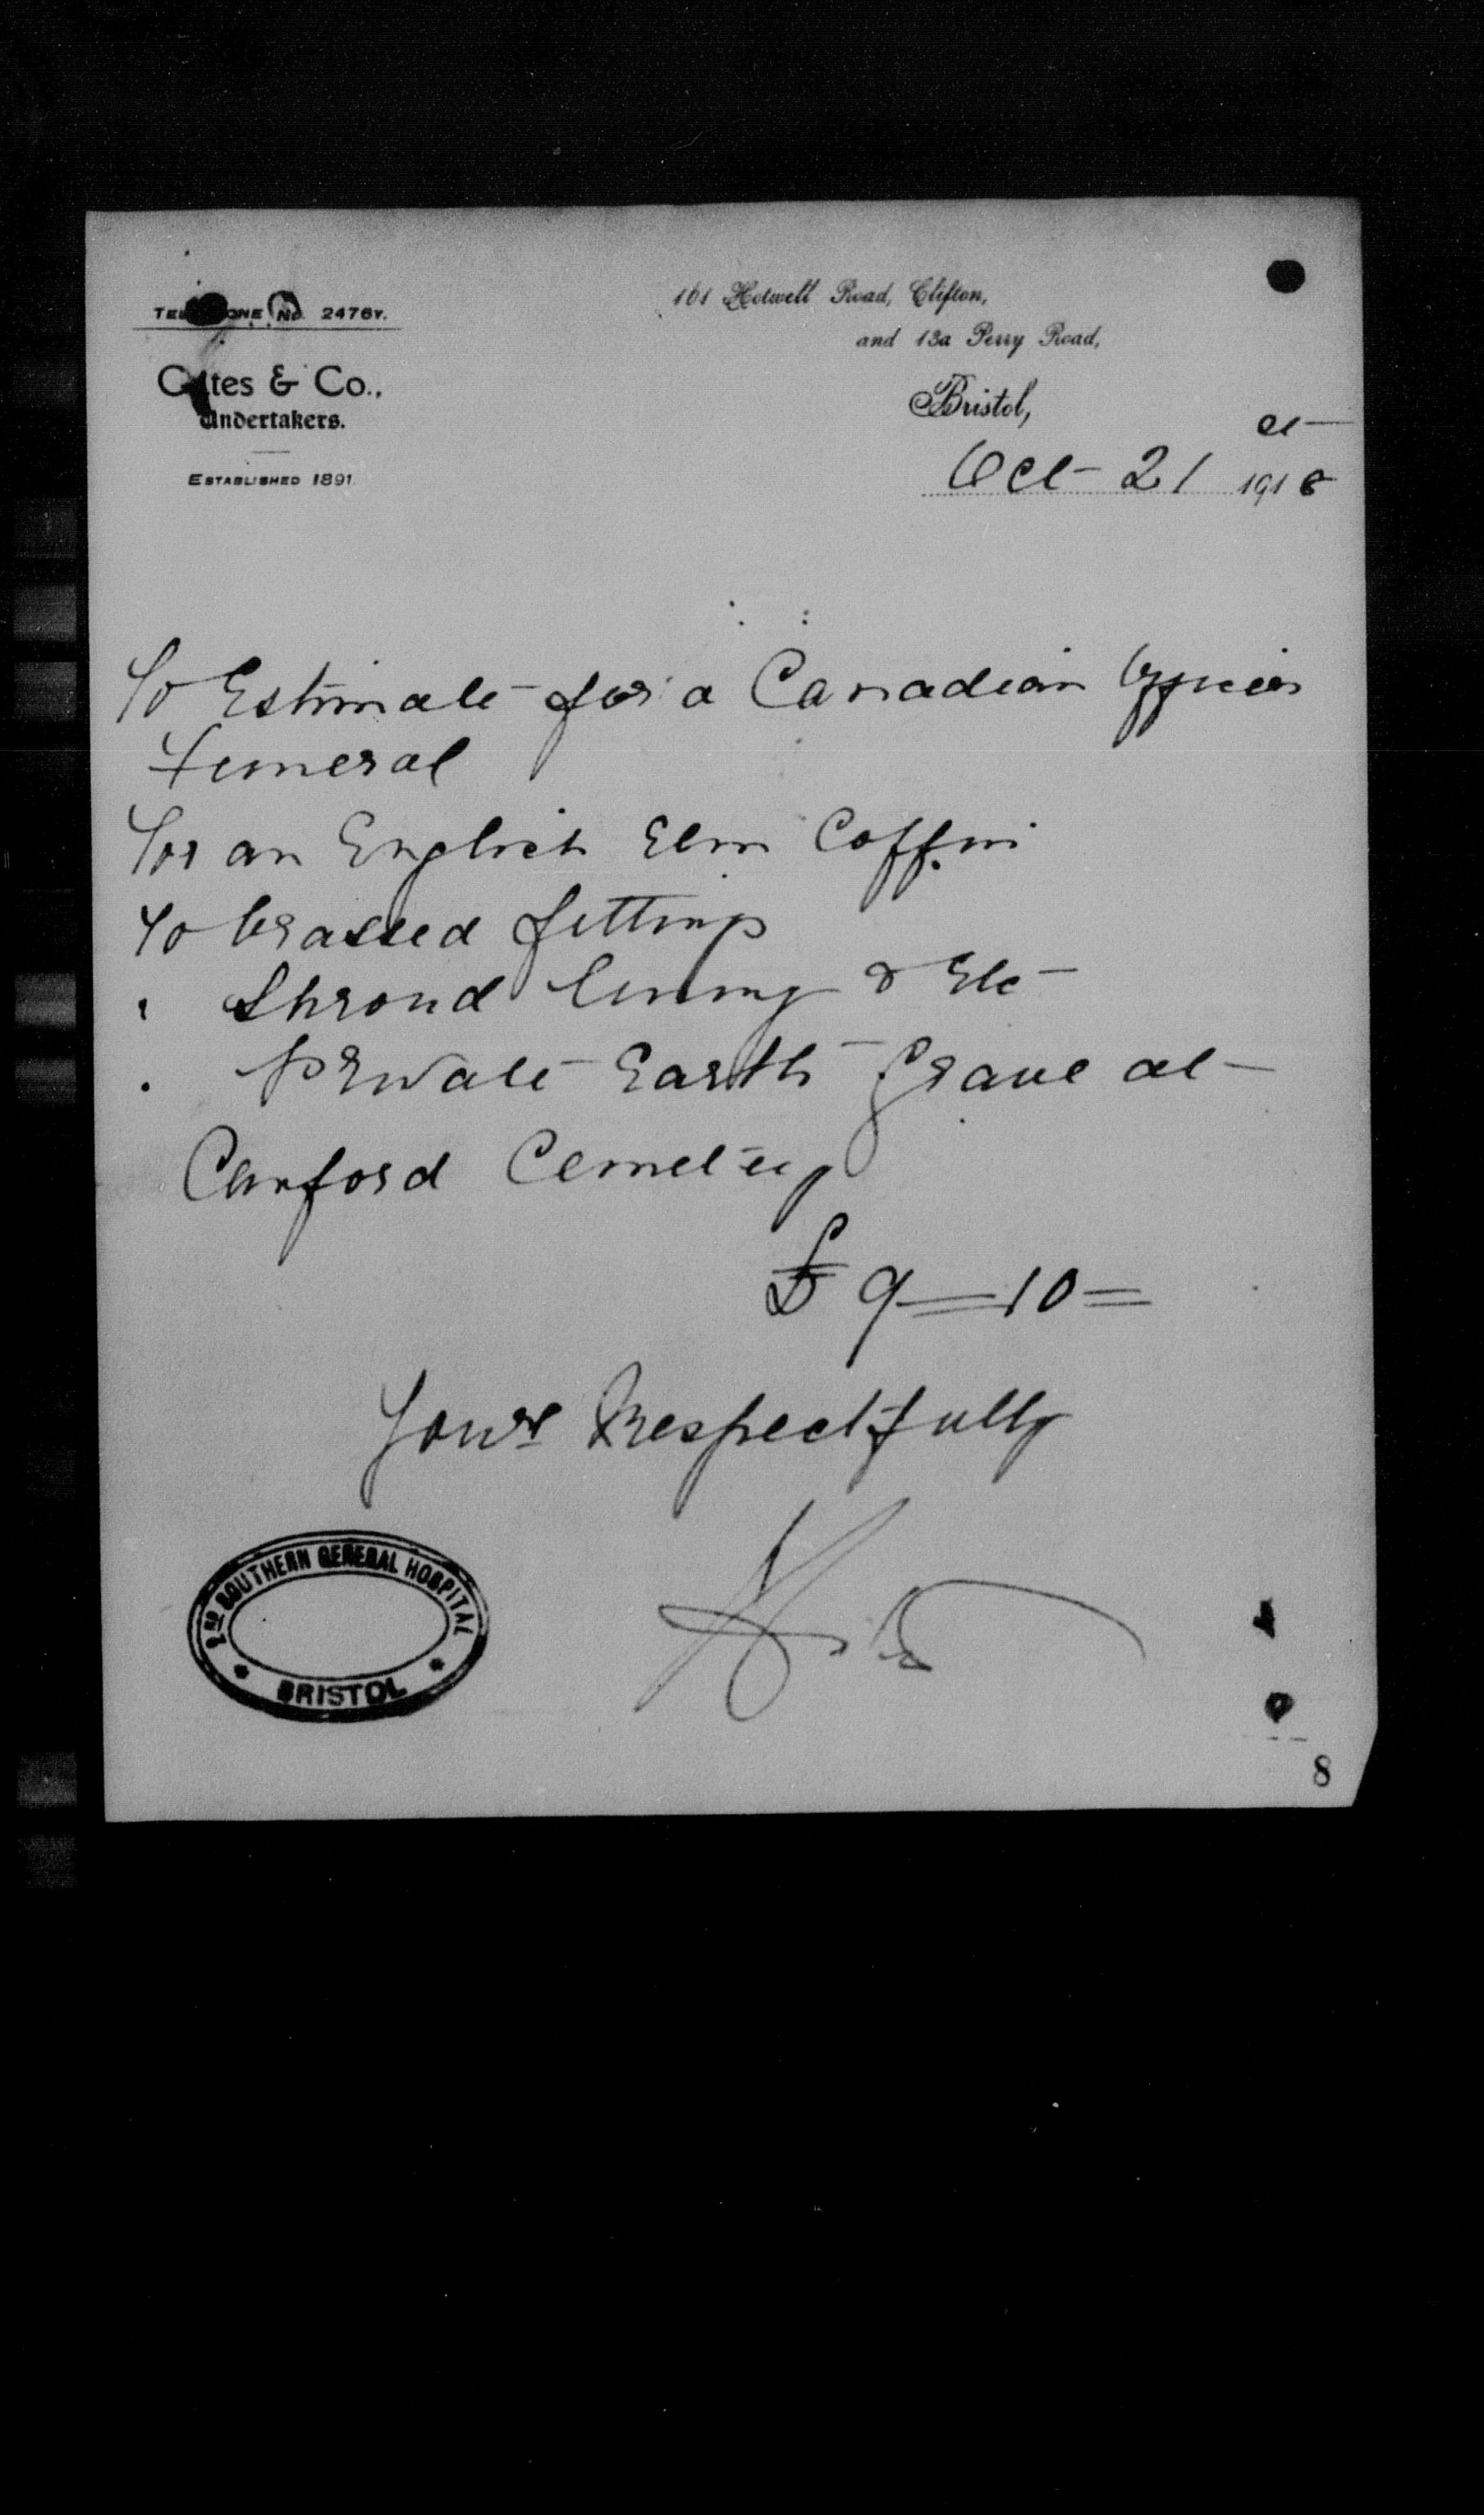 TELEPHONE No. 2476Y.
& Co.,
Undertakers.
ESTABLISHED 1891
161 Hotwell Road, Clifton,
and 13a Perry Road,
Bristol,
Oct 21 st 1918
To Estimate for a Canadian Officers
Funeral
For an English Elm Coffin
To brassed fittings
" Shroud lining & Etc
" Private Earth Grave at
Canford Cemetery
£ 9 = 10 =
Yours Respectfully
2ND SOUTHERN GENERAL HOSPITAL
BRISTOL
8